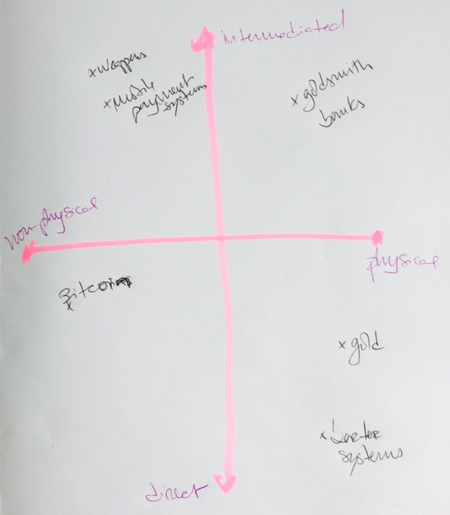 intermediated
x
x mobile
payment
systems
x goldsmith
banks
non physical
physical
Bitcoin
x
x gold
x barter
systems
direct